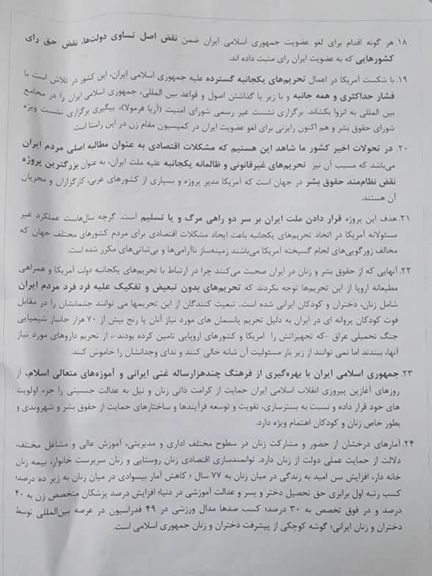 ۱۸. هر گونه اقدام برای لغو عضویت جمهوری اسلامی ایران ضمن نقض اصل تساوی دولت‌ها، نقض حق رای
کشورهایی که به عضویت ایران رای مثبت داده اند.
۱۹. با شکست آمریکا در اعمال تحریم‌های یکجانبه گسترده علیه جمهوری اسلامی ایران، این کشور در تلاش است با
فشار حداکثری و همه جانبه و با زیر پا گذاشتن اصول و قواعد بین المللی، جمهوری اسلامی ایران را در مجامع
بین المللی به انزوا بکشاند. برگزاری نشست غیر رسمی شورای امنیت (آریا فرمولا)، پیگیری برگزاری نشست ویژه
شورای حقوق بشر و هم اکنون رایزنی برای لغو عضویت ایران در کمیسیون مقام زن در این راستا است.
۲۰. در تحولات اخیر کشور ما شاهد این هستیم که مشکلات اقتصادی به عنوان مطالبه اصلی مردم ایران
می‌باشد که مسبب آن نیز تحریم‌های غیرقانونی و ظالمانه یکجانبه علیه ملت ایران، به عنوان بزرگترین پروژه
نقض نظام‌مند حقوق بشر در جهان است که آمریکا مدیر پروژه و بسیاری از کشورهای غربی، کارگزاران و مجریان
آن هستند.
۲۱. هدف این پروژه قرار دادن ملت ایران بر سر دو راهی مرگ و یا تسلیم است. گرچه سال‌هاست عملکرد غیر
مسئولانه آمریکا در اتخاذ تحریم‌های یکجانبه باعث ایجاد مشکلات اقتصادی برای مردم کشورهای مختلف جهان که
مخالف زورگویی‌های لجام گسیخته آمریکا می‌باشند زمینه‌ساز ناآرامی‌ها و بی‌ثباتی‌های مکرر شده است.
۲۲. آنهایی که از حقوق بشر و زنان در ایران صحبت می‌کنند چرا در ارتباط با تحریم‌های یکجانبه دولت آمریکا و همراهی
مطیعانه اروپا از این تحریم‌ها توجه نکردند که تحریم‌های بدون تبعیض و تفکیک علیه فرد فرد مردم ایران
شامل زنان، دختران و کودکان ایرانی شده است. تبعیت کنندگان از این تحریمها می توانند چشمانشان را در مقابل
فوت کودکان پروانه ای در ایران به دلیل تحریم پانسمان های مورد نیاز آنان یا رنج بیش از ۷۰ هزار جانباز شیمیایی
جنگ تحمیلی عراق –که تجهیزاتش را آمریکا و کشورهای اروپایی تامین کرده بودند– از تحریم داروهای مورد نیاز
آنها، ببندند اما نمی توانند از زیر بار مسئولیت آن شانه خالی کنند و ندای وجدانشان را خاموش کنند.
۲۳. جمهوری اسلامی ایران با بهره‌گیری از فرهنگ چندهزارساله غنی ایرانی و آموزه‌های متعالی اسلام، از
روزهای آغازین پیروزی انقلاب اسلامی ایران حمایت از کرامت ذاتی زنان و نیل به عدالت جنسیتی را جزء اولویت
های خود قرار داده و نسبت به بسترسازی، تقویت و توسعه فرآیندها و ساختارهای حمایت از حقوق بشر و شهروندی و
بطور خاص زنان و کودکان اهتمام ویژه دارد.
۲۴. آمارهای درخشان از حضور و مشارکت زنان در سطوح مختلف اداری و مدیریتی، آموزش عالی و مشاغل مختلف،
دلالت از حمایت عملی دولت از زنان دارد. توانمندسازی اقتصادی زنان روستایی و زنان سرپرست خانوار، بیمه زنان
خانه دار، افزایش سن امید به زندگی در میان زنان به ۷۷ سال ؛ کاهش آمار بیسوادی در میان زنان به زیر ده درصد؛
کسب رتبه اول برابری حق تحصیل دختر و پسر و عدالت آموزشی در دنیا؛ افزایش درصد پزشکان متخصص زن به ۴۰
درصد و در فوق تخصص به ۳۰ درصد؛ کسب صدها مدال ورزشی در ۴۹ فدراسیون در عرصه بین‌المللی توسط
دختران و زنان ایرانی؛ گوشه کوچکی از پیشرفت دختران و زنان جمهوری اسلامی است.